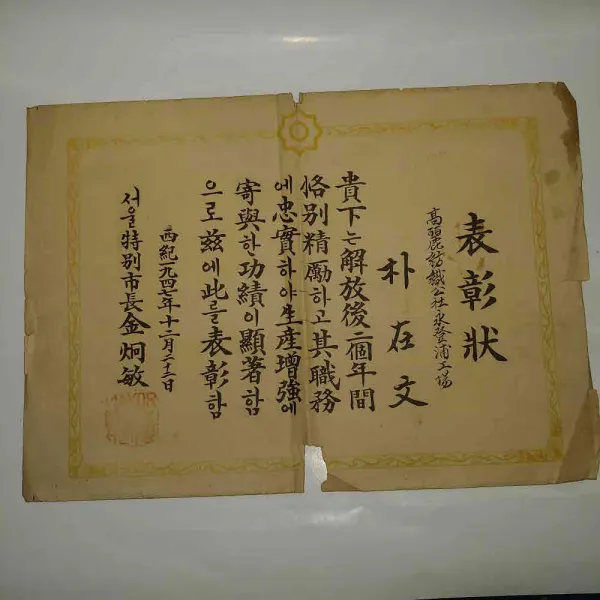 表彰狀
高麗紡織公社永登浦工場
朴在文
貴下는解放後二個年間
恪別精勵하고其職務
에忠實하야生産增強에
寄與한功績이顯著함
으로玆에此를表彰함
西紀一九四七年十二月二十二日
서울特別市長金炯敏
MAYOR